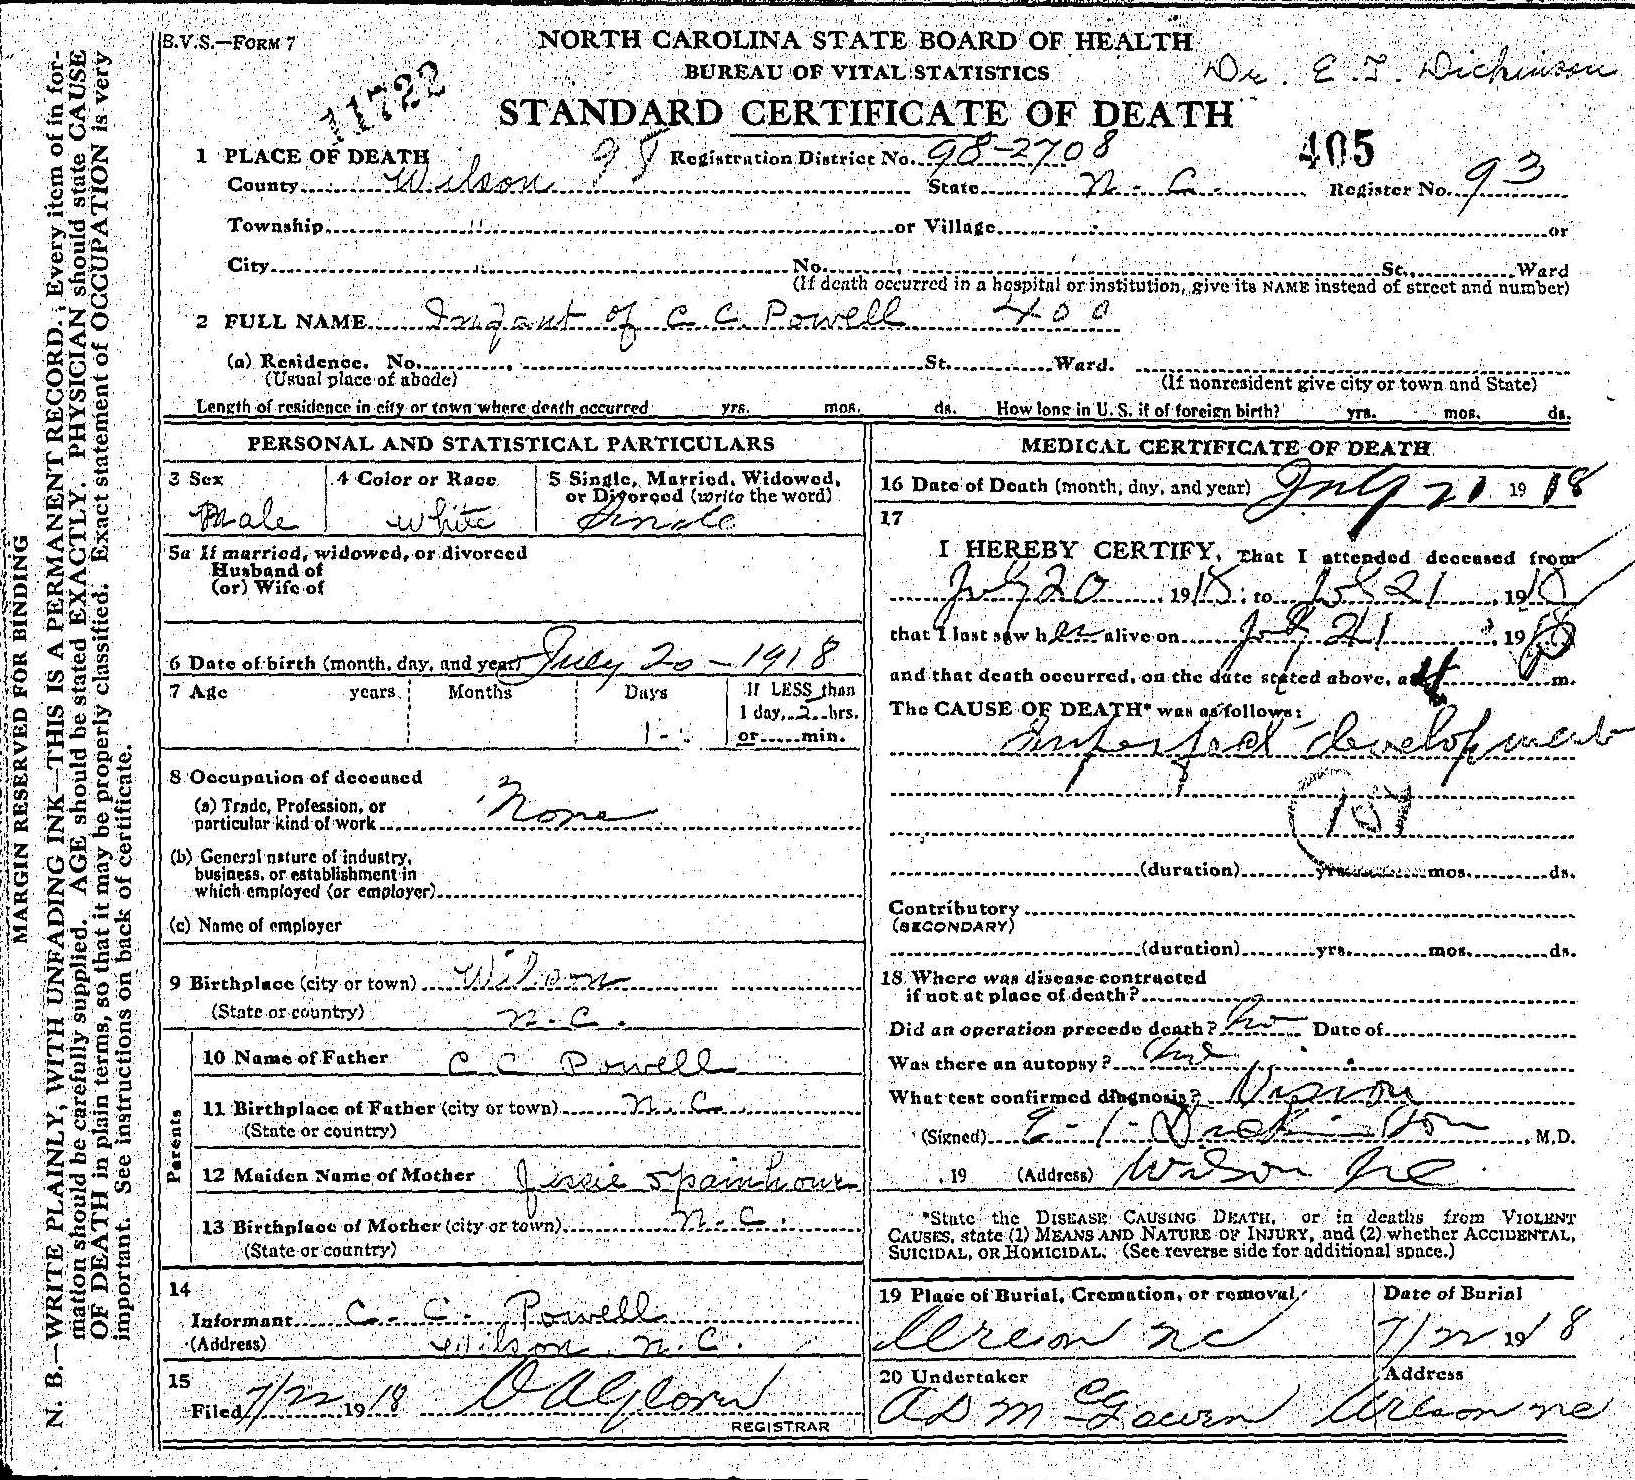 B.V.S.—FORM 7
NORTH CAROLINA STATE BOARD OF HEALTH
BUREAU OF VITAL STATISTICS
Dr. E. T. Dickinson
11722
STANDARD CERTIFICATE OF DEATH
405
1 PLACE OF DEATH 98 Registration District No. 98-2708
County Wilson State N. C. Register No. 93
Township " or Village or
City " No. St. Ward
(If death occurred in a hospital or institution, give its NAME instead of street and number)
2 FULL NAME Infant of C C Powell 400
(a) Residence. No. St. Ward.
(Usual place of abode) (If nonresident give city or town and State)
Length of residence in city or town where death occurred yrs. mos. ds. How long in U. S. if of foreign birth? yrs. mos. ds.
PERSONAL AND STATISTICAL PARTICULARS
3 Sex 4 Color or Race 5 Single, Married, Widowed,
or Divorced (write the word)
Male White Single
5a If married, widowed, or divorced
Husband of
(or) Wife of
6 Date of birth (month, day, and year) July 20 - 1918
7 Age years Months Days If LESS than
1 day, 2 hrs.
1 or min.
8 Occupation of deceased
(a) Trade, Profession, or
particular kind of work None
(b) General nature of industry,
business, or establishment in
which employed (or employer)
(c) Name of employer
9 Birthplace (city or town) Wilson
(State or country) N. C.
Parents
10 Name of Father C C Powell
11 Birthplace of Father (city or town) N. C.
(State or country)
12 Maiden Name of Mother Jessie Spainhour
13 Birthplace of Mother (city or town) N. C.
(State or country)
14
Informant C. C. Powell
(Address) Wilson N. C.
15
Filed 7/22 1918
REGISTRAR
MEDICAL CERTIFICATE OF DEATH
16 Date of Death (month, day, and year) July 21 1918
17
I HEREBY CERTIFY, That I attended deceased from
July 20 1918, to 21 1918
that I last saw h alive on July 21 1918
and that death occurred, on the date stated above, at 4 m.
The CAUSE OF DEATH* was as follows:
Imperfect development
(duration) yrs. mos. ds.
Contributory
(SECONDARY)
(duration) yrs. mos. ds.
18 Where was disease contracted
if not at place of death?
Did an operation precede death? No Date of
Was there an autopsy? No
What test confirmed diagnosis? Vision
(Signed) E. T. Dickinson, M.D.
, 19 (Address) Wilson NC
*State the DISEASE CAUSING DEATH, or in deaths from VIOLENT
CAUSES, state (1) MEANS AND NATURE OF INJURY, and (2) whether ACCIDENTAL,
SUICIDAL, OR HOMICIDAL. (See reverse side for additional space.)
19 Place of Burial, Cremation, or removal Date of Burial
Wilson NC 7/22 1918
20 Undertaker Address
A D McGowen Wilson NC
MARGIN RESERVED FOR BINDING
N. B.—WRITE PLAINLY, WITH UNFADING INK—THIS IS A PERMANENT RECORD. Every item of in for-
mation should be carefully supplied. AGE should be stated EXACTLY. PHYSICIAN should state CAUSE
OF DEATH in plain terms, so that it may be properly classified. Exact statement of OCCUPATION is very
important. See instructions on back of certificate.